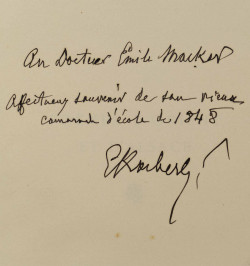 Au Docteur Émile
Affectueux souvenir de son vieux
camarade d'école de 1848